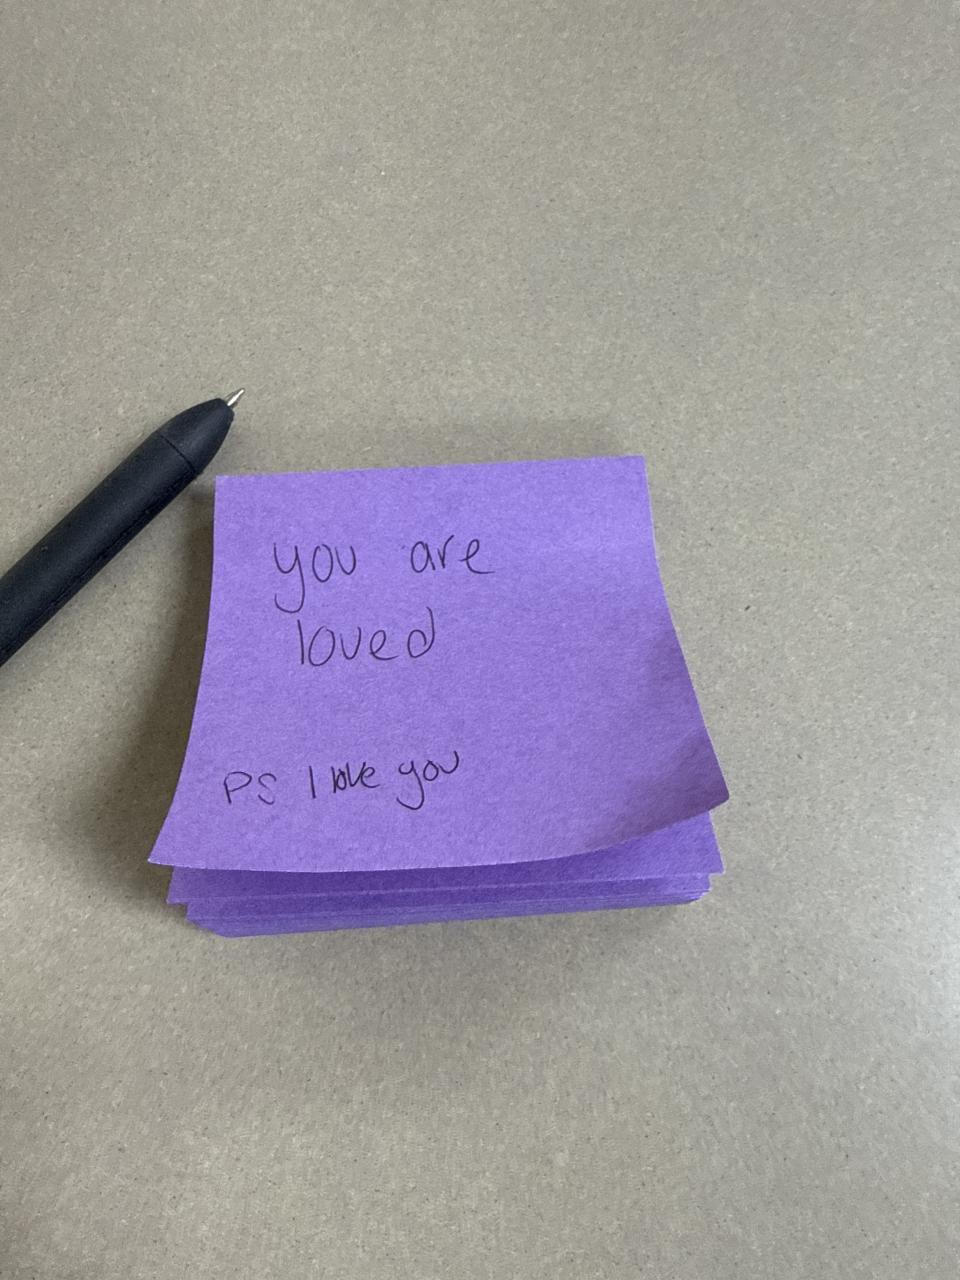 you are
loved
PS I love you